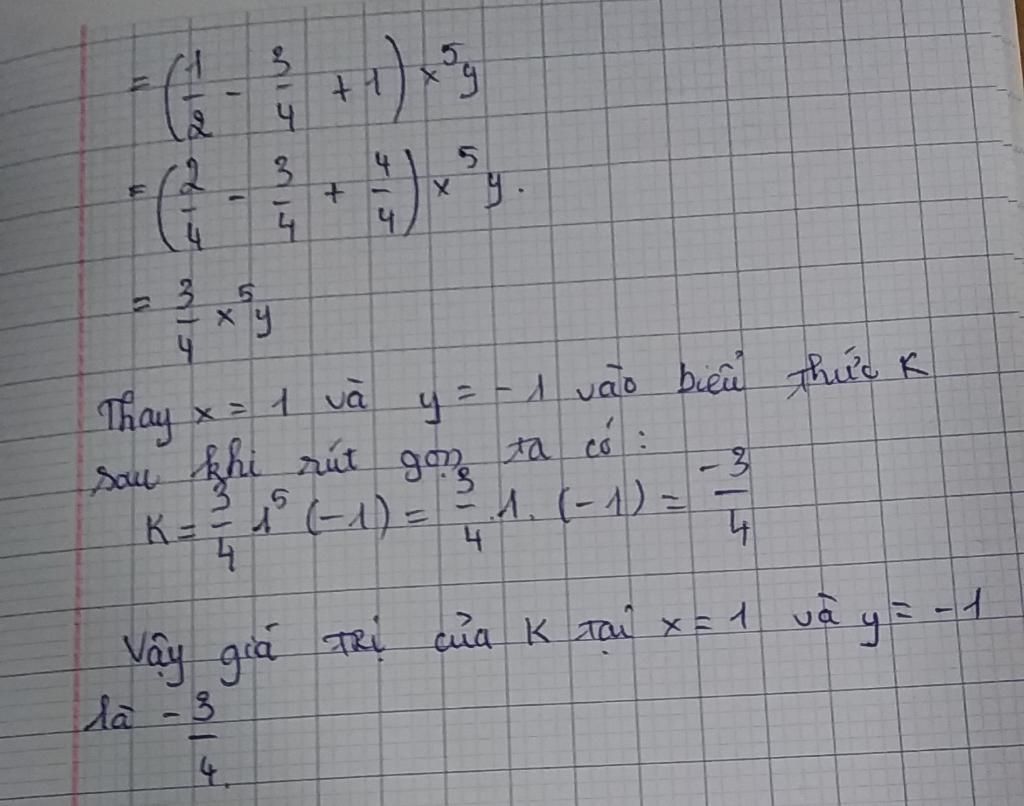 = (1/2 - 3/4 + 1) x⁵y
= (2/4 - 3/4 + 4/4) x⁵y.
= 3/4 x⁵y
Thay x = 1 và y = -1 vào biểu thức K
sau khi rút gọn ta có:
K = 3/4 1⁵ (-1) = 3/4 . 1 . (-1) = -3/4
Vậy giá trị của K tại x = 1 và y = -1
là - 3/4.